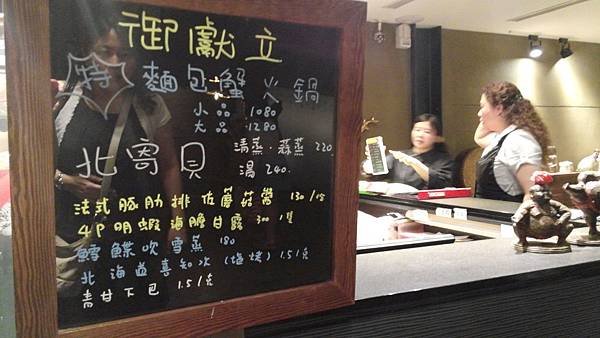 御獻立
特 麵包蟹 火鍋
小品 1080
大品 1280
北寄貝 清蒸·蒜蒸 220
湯 240
法式豚肋排佐蘑菇醬 130/
4P明蝦海膽甘露 300/隻
鱈鰈吹雪蒸 180
北海道真知次(塩烤) 1.5/克
青甘下巴 1.5/克